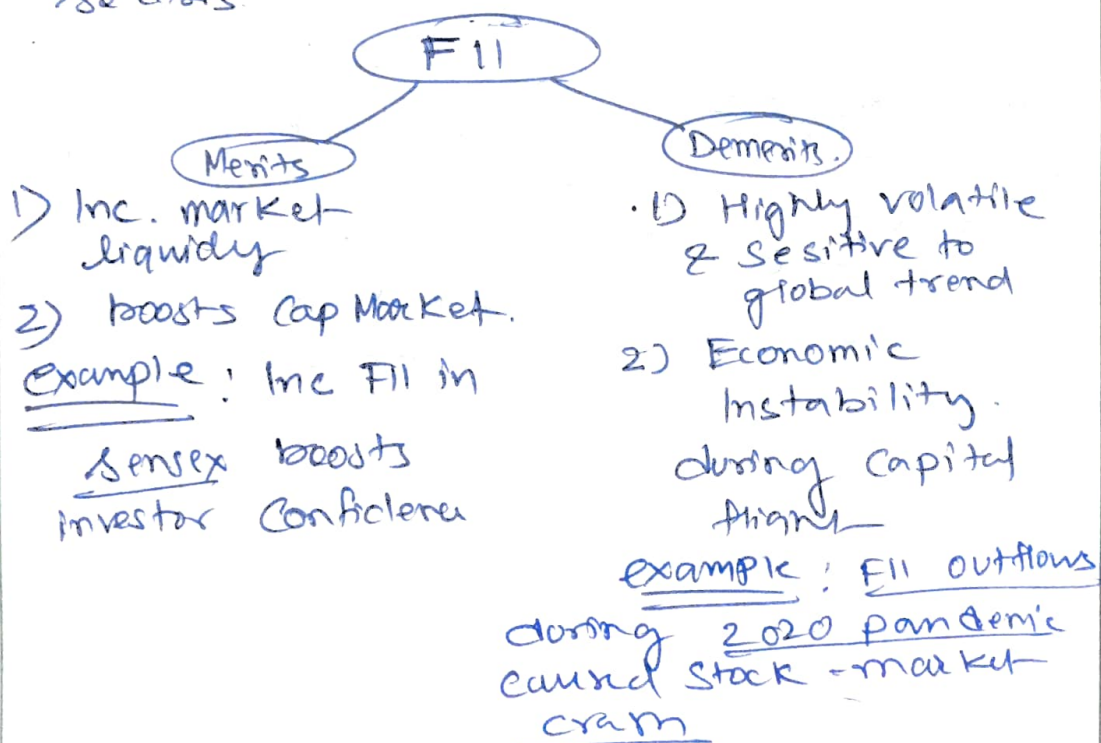 FII
Merits
1) Inc. market
liquidy
2) boosts Cap Market.
example : Inc FII in
sensex boosts
investor Confidence
Demerits.
1) Highly volatile
& sesitive to
global trend
2) Economic
Instability.
during capital
flight
example : FII outflows
during 2020 pandemic
caused stock-market
crash